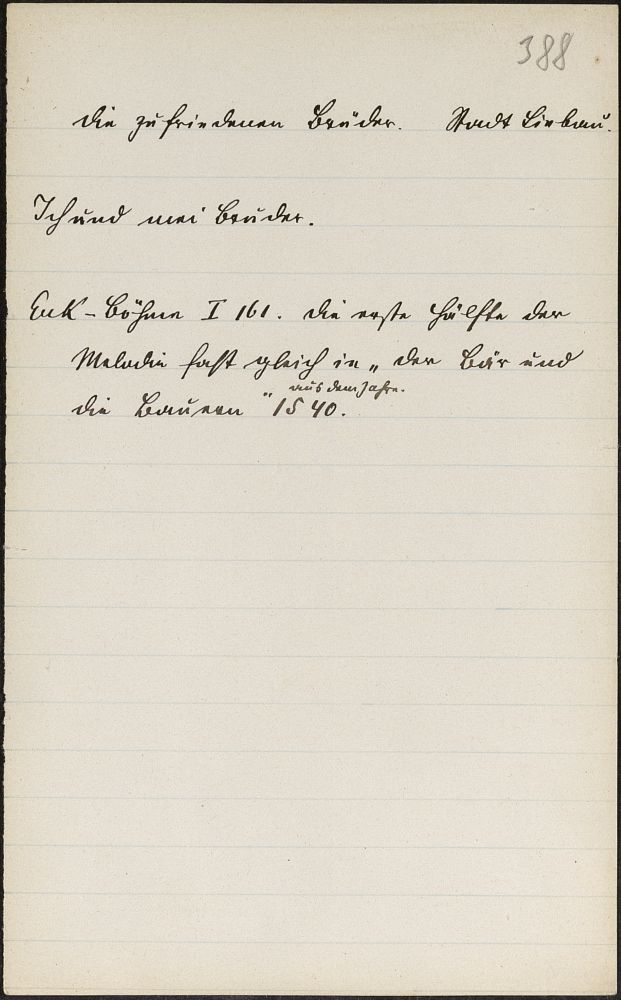 388
Die zufriedenen Brüder. Stadt Liebau.
Ich und mei Bruder.
Erk-Böhme I 161. Die erste Hälfte der
Melodie fast gleich in „Der Bär und
aus dem Jahre.
die Bauern" 1540.